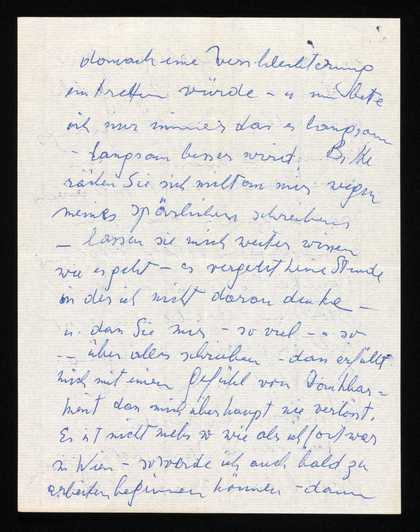 danach eine Verschlechterung
eintretten würde – u
ich nur immer das es langsam
– langsam besser wird. Bitte
Sie sich nicht an mir wegen
meines spärlichen schreibens
– lassen sie mich weiter wissen
wie es geht – es vergeht keine Stunde
in der ich nicht daran denke –
u. dan Sie mir – so viel – u so
– über alles schreiben – das erfüllt
mich mit einem Gefühl von Dankbar-
keit das mich überhaupt nie verlässt.
Es ist nicht mehr so wie als ich fort war
in Wien – so werde ich auch bald zu
arbeiten beginnen können – dann